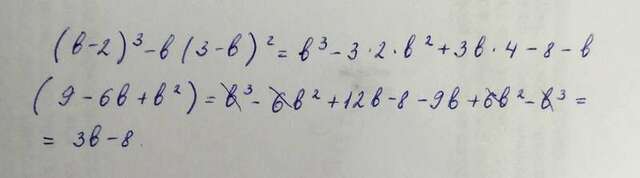 (в-2)³-в(3-в)²=в³-3·2·в²+3в·4-8-в
(9-6в+в²)=в³-6в²+12в-8-9в+6в²-в³=
=3в-8.